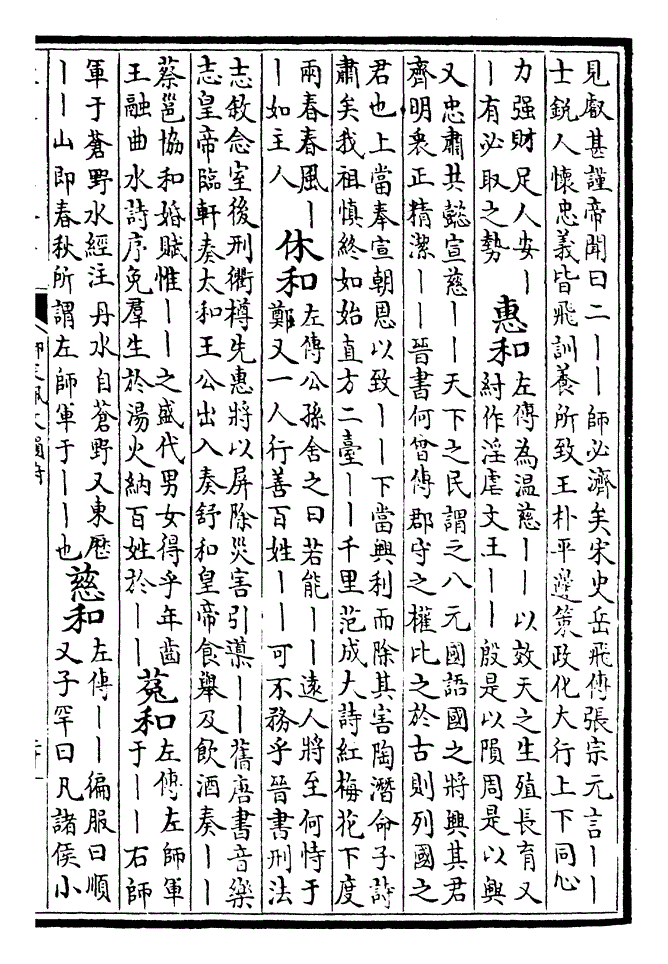 見叡甚謹帝聞曰二丨丨師必濟矣宋史岳飛傳張宗元言丨丨
士銳人懷忠義皆飛訓養所致王朴平邊策政化大行上下同心
力强財足人安丨
丨有必取之勢
惠和
左傳為温慈丨丨以效天之生殖長育又
紂作淫虐文王丨丨殷是以隕周是以興
又忠肅共懿宣慈丨丨天下之民謂之八元國語國之將興其君
齊明衷正精潔丨丨晉書何曾傳郡守之權比之於古則列國之
君也上當奉宣朝恩以致丨丨下當興利而除其害陶潛命子詩
肅矣我祖慎終如始直方二臺丨丨千里范成大詩紅梅花下度
兩春春風丨
丨如主人
休和
左傳公孫舍之曰若能丨丨遠人將至何恃于
鄭又一人行善百姓丨丨可不務乎晉書刑法
志敘念室後刑衢樽先惠將以屏除災害引導丨丨舊唐書音樂
志皇帝臨軒奏太和王公出入奏舒和皇帝食舉及飲酒奏丨丨
蔡邕協和婚賦惟丨丨之盛代男女得乎年齒
王融曲水詩序免羣生於湯火納百姓於丨丨
菟和
左傳左師軍
于丨丨右師
軍于蒼野水經注丹水自蒼野又東歷
丨丨山即春秋所謂左師軍于丨丨也
慈和
左傳丨丨徧服曰順
又子罕曰凡諸侯小